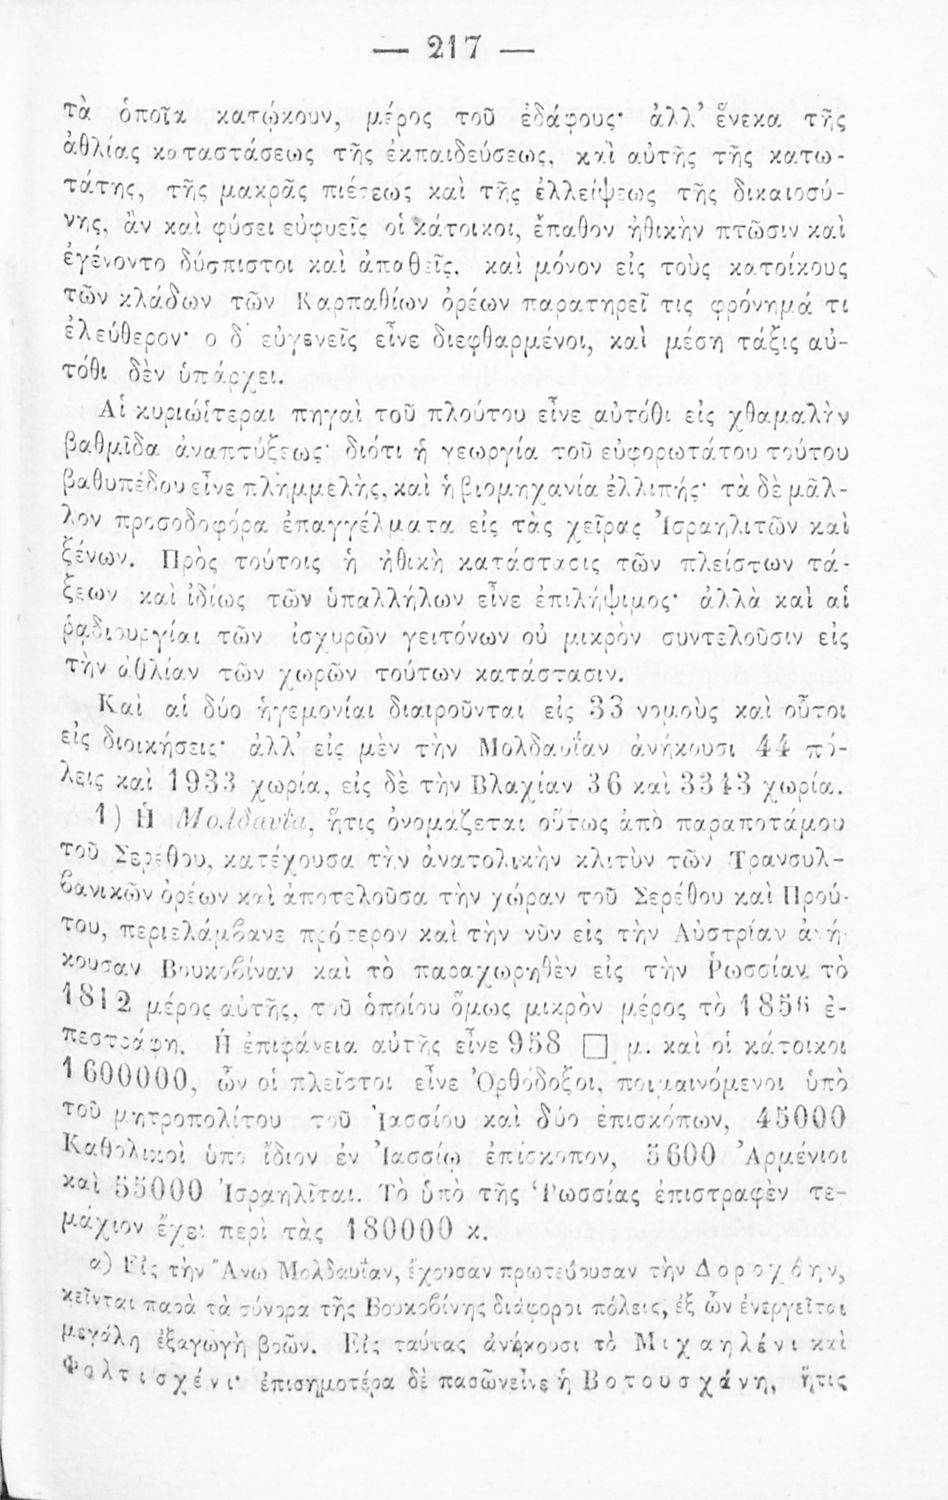 — 217 —
τὰ ὁποῖα κατῴκουν, μέρος τοῦ ἐδάφους· ἀλλ’ ἕνεκα τῆς
ἀθλίας καταστάσεως τῆς ἐκπαιδεύσεως, καὶ αὐτῆς τῆς κατω-
τάτης, τῆς μακρᾶς πιέσεως καὶ τῆς ἐλλείψεως τῆς δικαιοσύ-
νης, ἂν καὶ φύσει εὐφυεῖς οἱ κάτοικοι, ἔπαθον ἠθικὴν πτῶσιν καὶ
ἐγένοντο δύσπιστοι καὶ ἀπαθεῖς, καὶ μόνον εἰς τοὺς κατοίκους
τῶν κλάδων τῶν Καρπαθίων ὀρέων παρατηρεῖ τις φρόνημά τι
ἐλεύθερον· ο δ’ εὐγενεῖς εἶνε διεφθαρμένοι, καὶ μέση τάξις αὐ-
τόθι δὲν ὑπάρχει.
Αἱ κυριώτεραι πηγαὶ τοῦ πλούτου εἶνε αὐτόθι εἰς χθαμαλὴν
βαθμῖδα ἀναπτύξεως· διότι ἡ γεωργία τοῦ εὐφορωτάτου τούτου
βαθυπέδου εἶνε πλημμελής, καὶ ἡ βιομηχανία ἐλλιπής· τὰ δὲ μᾶλ-
λον προσοδοφόρα ἐπαγγέλματα εἰς τὰς χεῖρας Ἰσραηλιτῶν καὶ
ξένων. Πρὸς τούτοις ἡ ἠθικὴ κατάστασις τῶν πλείστων τά-
ξεων καὶ ἰδίως τῶν ὑπαλλήλων εἶνε ἐπιλήψιμος· ἀλλὰ καὶ αἱ
ῥᾳδιουργίαι τῶν ἰσχυρῶν γειτόνων οὐ μικρὸν συντελοῦσιν εἰς
τὴν ἀθλίαν τῶν χωρῶν τούτων κατάστασιν.
Καὶ αἱ δύο ἡγεμονίαι διαιροῦνται εἰς 33 νομοὺς καὶ οὗτοι
εἰς διοικήσεις· ἀλλ’ εἰς μὲν τὴν Μολδαυΐαν ἀνήκουσι 44 πό-
λεις καὶ 1933 χωρία, εἰς δὲ τὴν Βλαχίαν 36 καὶ 3343 χωρία.
1) Ἡ Μολδαυΐα, ἥτις ὀνομάζεται οὕτως ἀπὸ παραποτάμου
τοῦ Σερέθου, κατέχουσα τὴν ἀνατολικὴν κλιτὺν τῶν Τρανσυλ-
βανικῶν ὀρέων καὶ ἀποτελοῦσα τὴν χώραν τοῦ Σερέθου καὶ Πρού-
του, περιελάμβανε πρότερον καὶ τὴν νῦν εἰς τὴν Αὐστρίαν ἀνή-
κουσαν Βουκοβίναν καὶ τὸ παραχωρηθὲν εἰς τὴν Ῥωσσίαν τὸ
1812 μέρος αὐτῆς, τοῦ ὁποίου ὅμως μικρὸν μέρος τὸ 1856 ἐ-
πεστράφη. Ἡ ἐπιφάνεια αὐτῆς εἶνε 958 □ μ. καὶ οἱ κάτοικοι
1600000, ὧν οἱ πλεῖστοι εἶνε Ὀρθόδοξοι, ποιμαινόμενοι ὑπὸ
τοῦ μητροπολίτου τοῦ Ἰασσίου καὶ δύο ἐπισκόπων, 45000
Καθολικοὶ ὑπὸ ἴδιον ἐν Ἰασσίῳ ἐπίσκοπον, 5600 Ἀρμένιοι
καὶ 55000 Ἰσραηλῖται. Τὸ ὑπὸ τῆς Ῥωσσίας ἐπιστραφὲν τε-
μάχιον ἔχει περὶ τὰς 180000 κ.
α) Εἰς τὴν Ἄνω Μολδαυΐαν, ἔχουσαν πρωτεύουσαν τὴν Δοροχόην,
κεῖνται παρὰ τὰ σύνορα τῆς Βουκοβίνης διάφοροι πόλεις, ἐξ ὧν ἐνεργεῖται
μεγάλη ἐξαγωγὴ βοῶν. Εἰς ταύτας ἀνήκουσι τὸ Μιχαηλένι καὶ
Φαλτισχένι· ἐπισημοτέρα δὲ πασῶν εἶνε ἡ Βοτουσχάνη, ἥτις